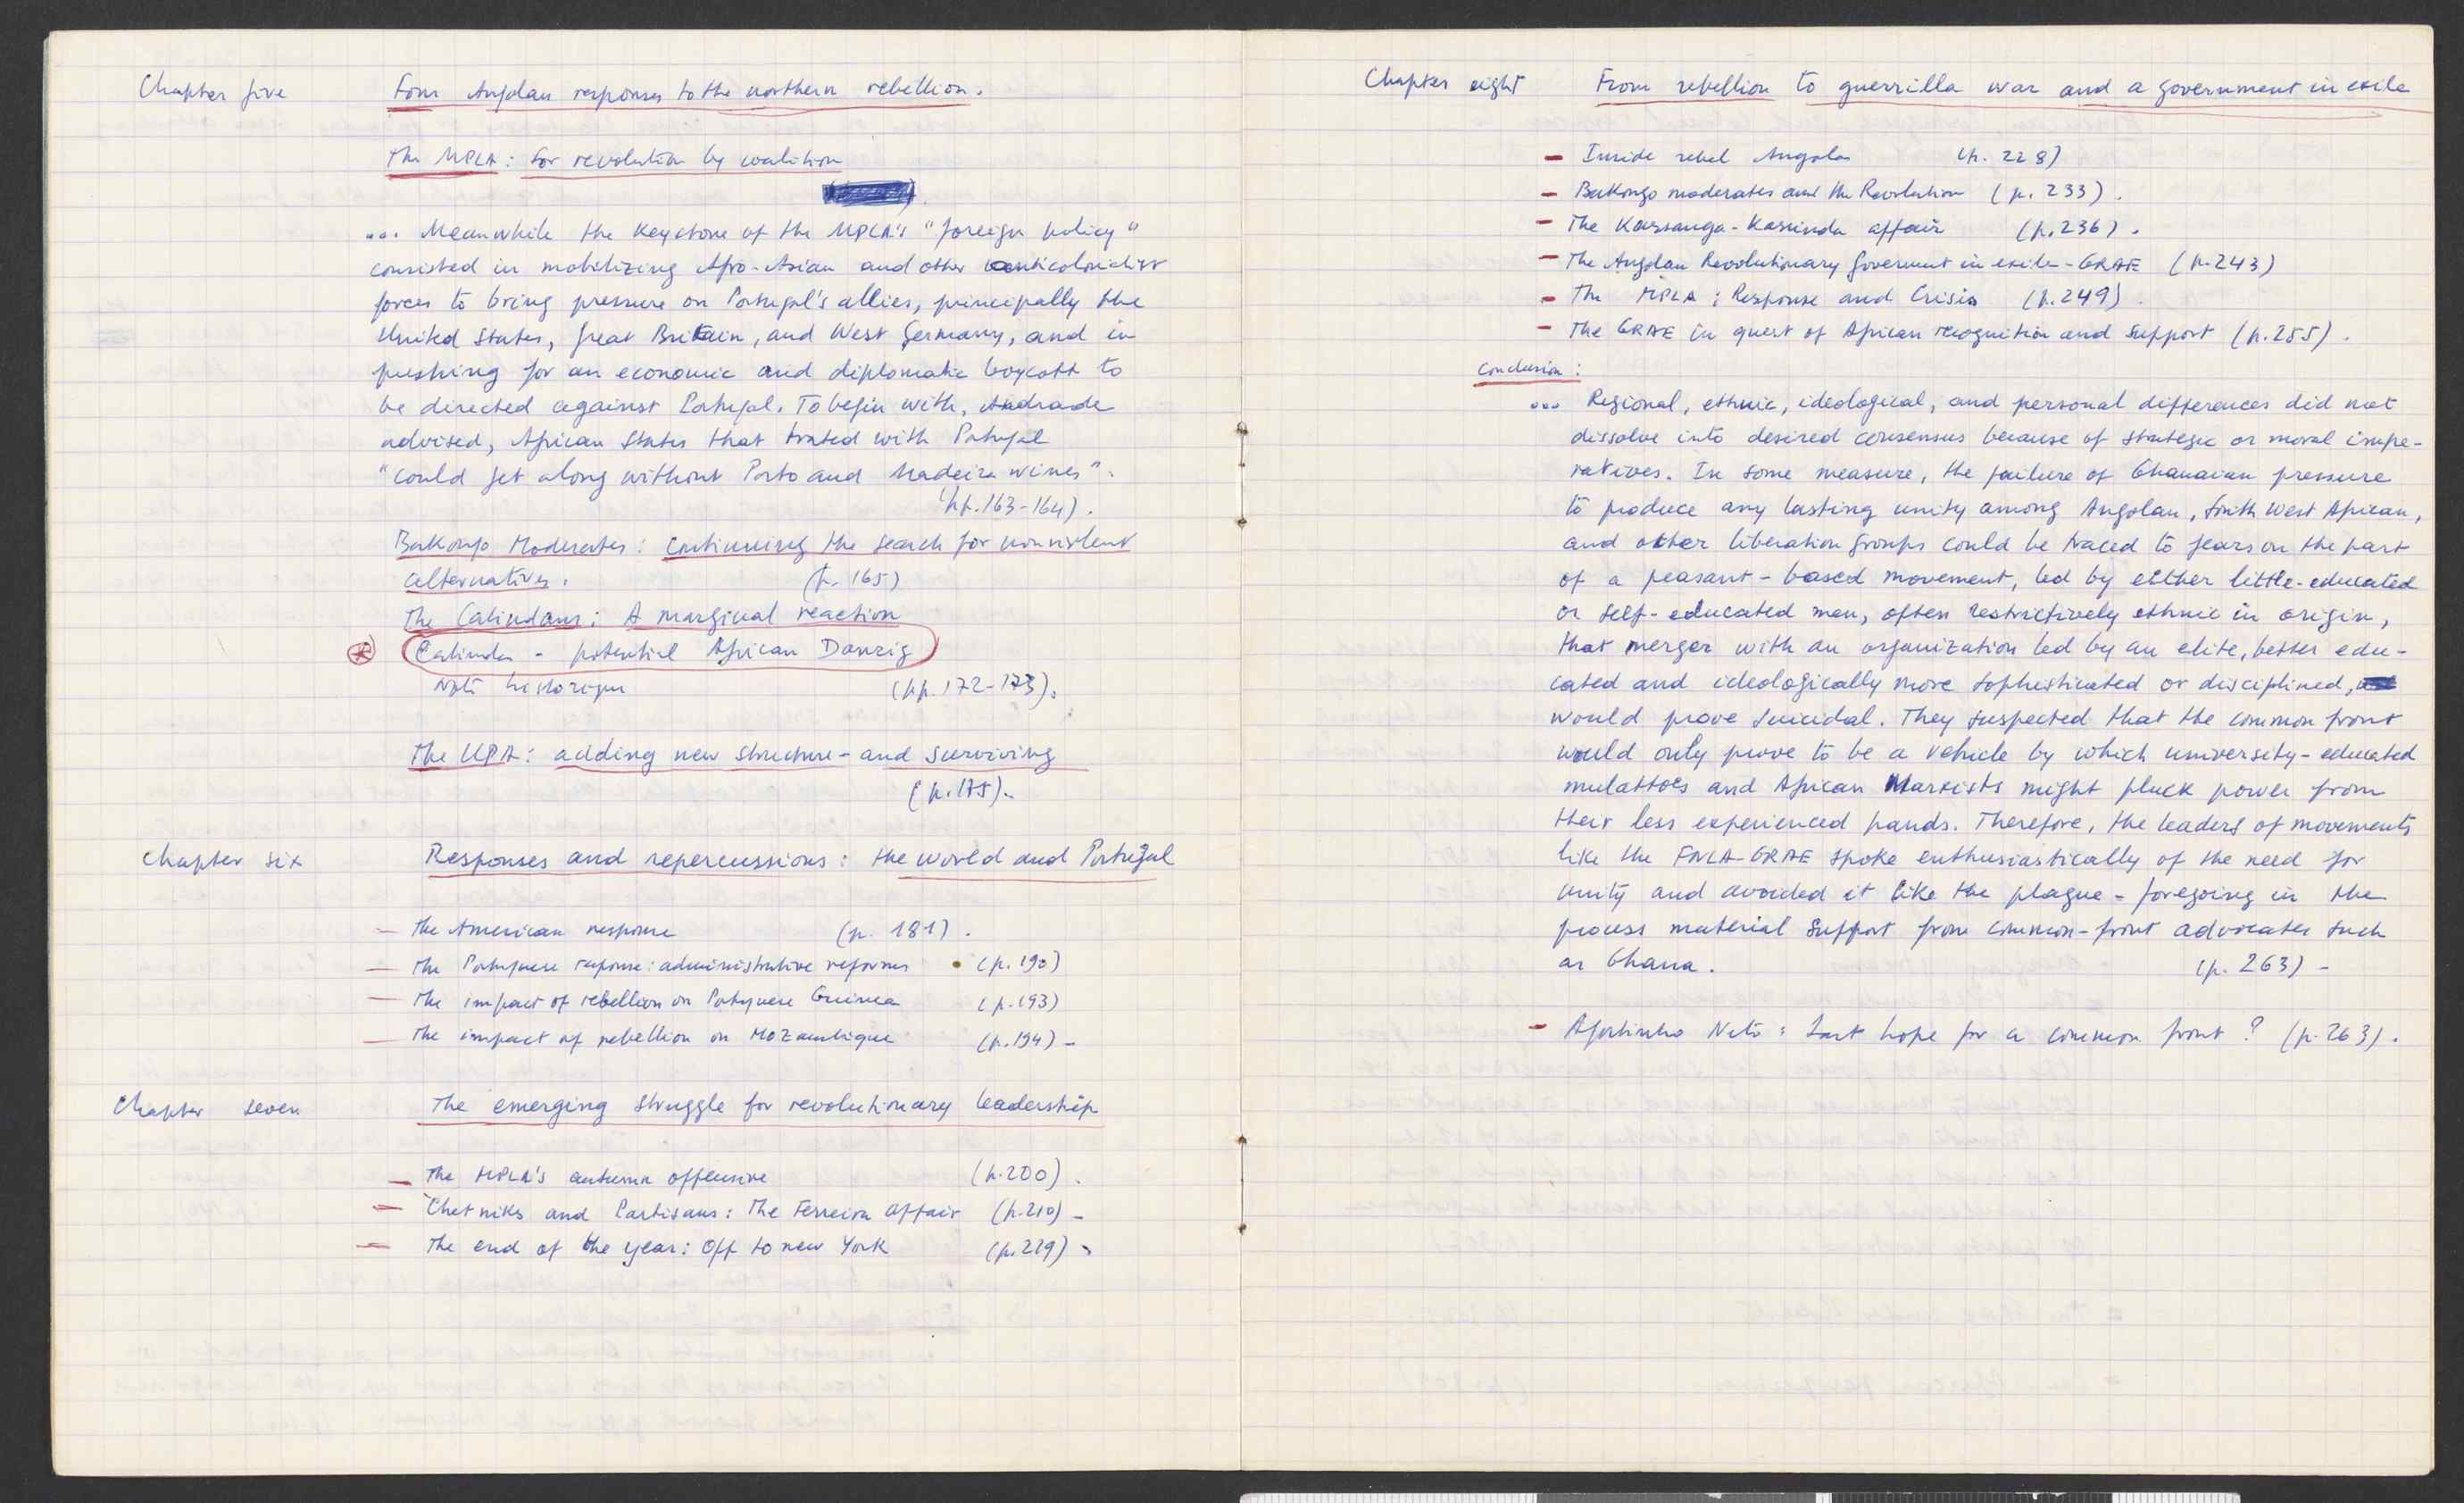 Chapter five Four Angolan responses to the northern rebellion.
The MPLA: for revolution by coalition
... Meanwhile the keystone of the MPLA's "foreign policy"
consisted in mobilizing Afro-Asian and other anticolonialist
forces to bring pressure on Portugal's allies, principally the
United States, Great Britain, and West Germany, and in
pushing for an economic and diplomatic boycott to
be directed against Portugal. To begin with, Andrade
advised, African States that traded with Portugal
"could get along without Porto and Madeira wines".
(pp. 163-164).
Bakongo Moderates: continuing the search for nonviolent
alternatives. (p. 165)
The Cabindans: A marginal reaction
Cabinda - potential African Danzig
Note historique (pp. 172-173).
The UPA: adding new structure - and surviving
(p. 175).
Chapter six Responses and repercussions: the world and Portugal
- The American response (p. 181).
- The Portuguese response: administrative reforms (p. 190)
- The impact of rebellion on Portuguese Guinea (p. 193)
- The impact of rebellion on Mozambique (p. 194) -
Chapter seven The emerging struggle for revolutionary leadership
- The MPLA's autumn offensive (p. 200).
- Chetniks and Partisans: The Ferreira affair (p. 210) -
- The end of the year: Off to new York (p. 219)
Chapter eight From rebellion to guerrilla war and a government in exile
- Inside rebel Angola (p. 228)
- Bakongo moderates and the Revolution (p. 233).
- The Kassanga-Kassinda affair (p. 236).
- The Angolan Revolutionary Goverment in exile - GRAE (p. 243)
- The MPLA: Response and Crisis (p. 249).
- The GRAE in quest of African recognition and support (p. 255).
Conclusion:
... Regional, ethnic, ideological, and personal differences did not
dissolve into desired consensus because of strategic or moral impe-
ratives. In some measure, the failure of Ghanaian pressure
to produce any lasting unity among Angolan, South West African,
and other liberation groups could be traced to fears on the part
of a peasant-based movement, led by either little-educated
or self-educated men, often restrictively ethnic in origin,
that merger with an organization led by an elite, better edu-
cated and ideologically more sophisticated or disciplined,
would prove suicidal. They suspected that the common front
would only prove to be a vehicle by which university-educated
mulattoes and African Marxists might pluck power from
their less experienced hands. Therefore, the leaders of movements
like the FNLA-GRAE spoke enthusiastically of the need for
unity and avoided it like the plague - foregoing in the
process material support from common-front advocates such
as Ghana. (p. 263) -
- Agostinho Neto: Last hope for a common front? (p. 263).